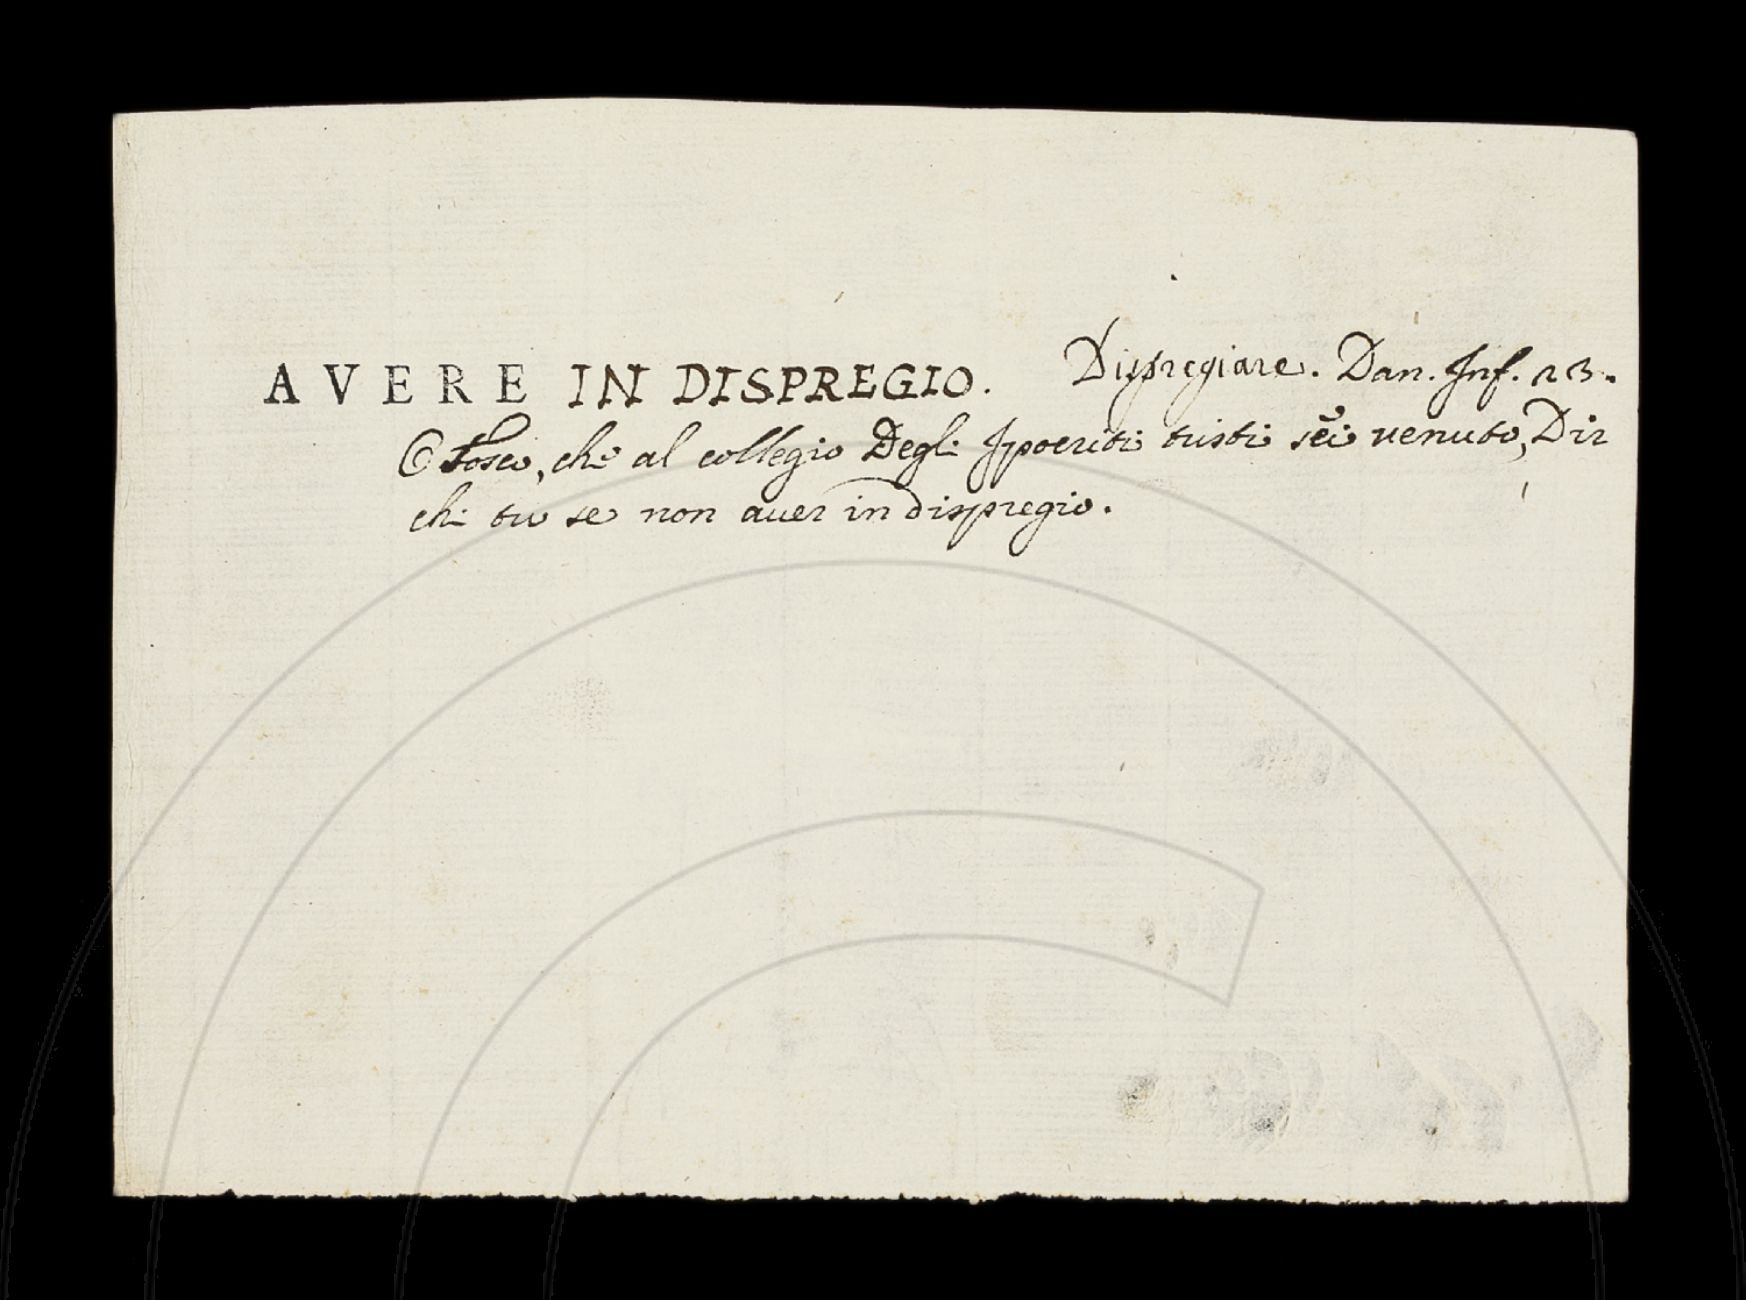 AVERE IN DISPREGIO. Dispregiare. Dan. Inf. 23.
O Tosco, che al collegio Degl' Ipocriti tristi sei venuto, Dir
chi tu se non aver in dispregio.